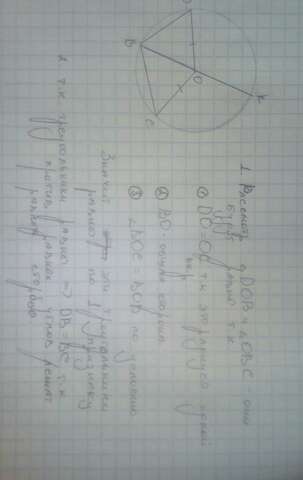 D
B
O
K
C
1. Рассмотр. △ DOB и △OBC - они
будут равны т.к.
① DO = OC т.к. это радиусы одной
окр
② BO - общая сторона
③ ∠BOC = BOD по условию
Значит эти треугольники
равны по 1 признаку
2. т.к. треугольники равны => DB = BC т.к.
против равных углов лежат
равные стороны